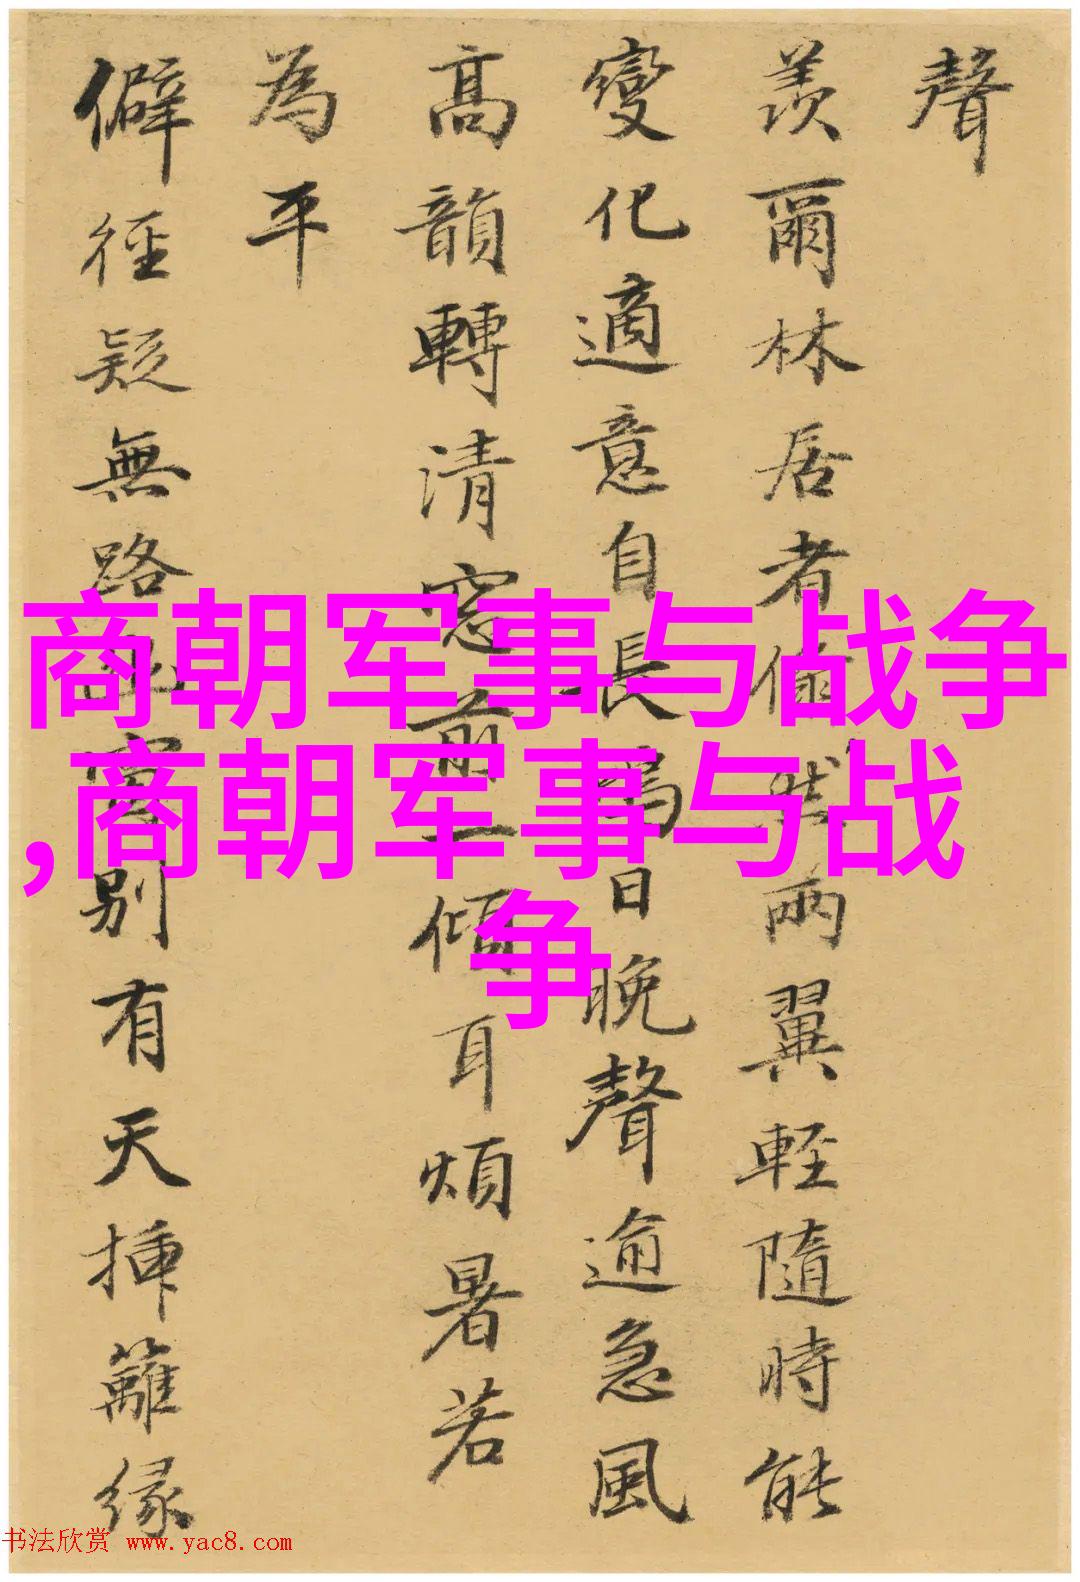 聲
羨爾林居者翛然兩翼輕隨時能
變化適意自長鳴日晚聲逾急風
高韻轉清窓前一傾耳煩暑若
為平
僻徑疑無路別有天揷籬緣
商朝军事与战争
,商朝军事与战
争
书法欣赏 www.yac8.com